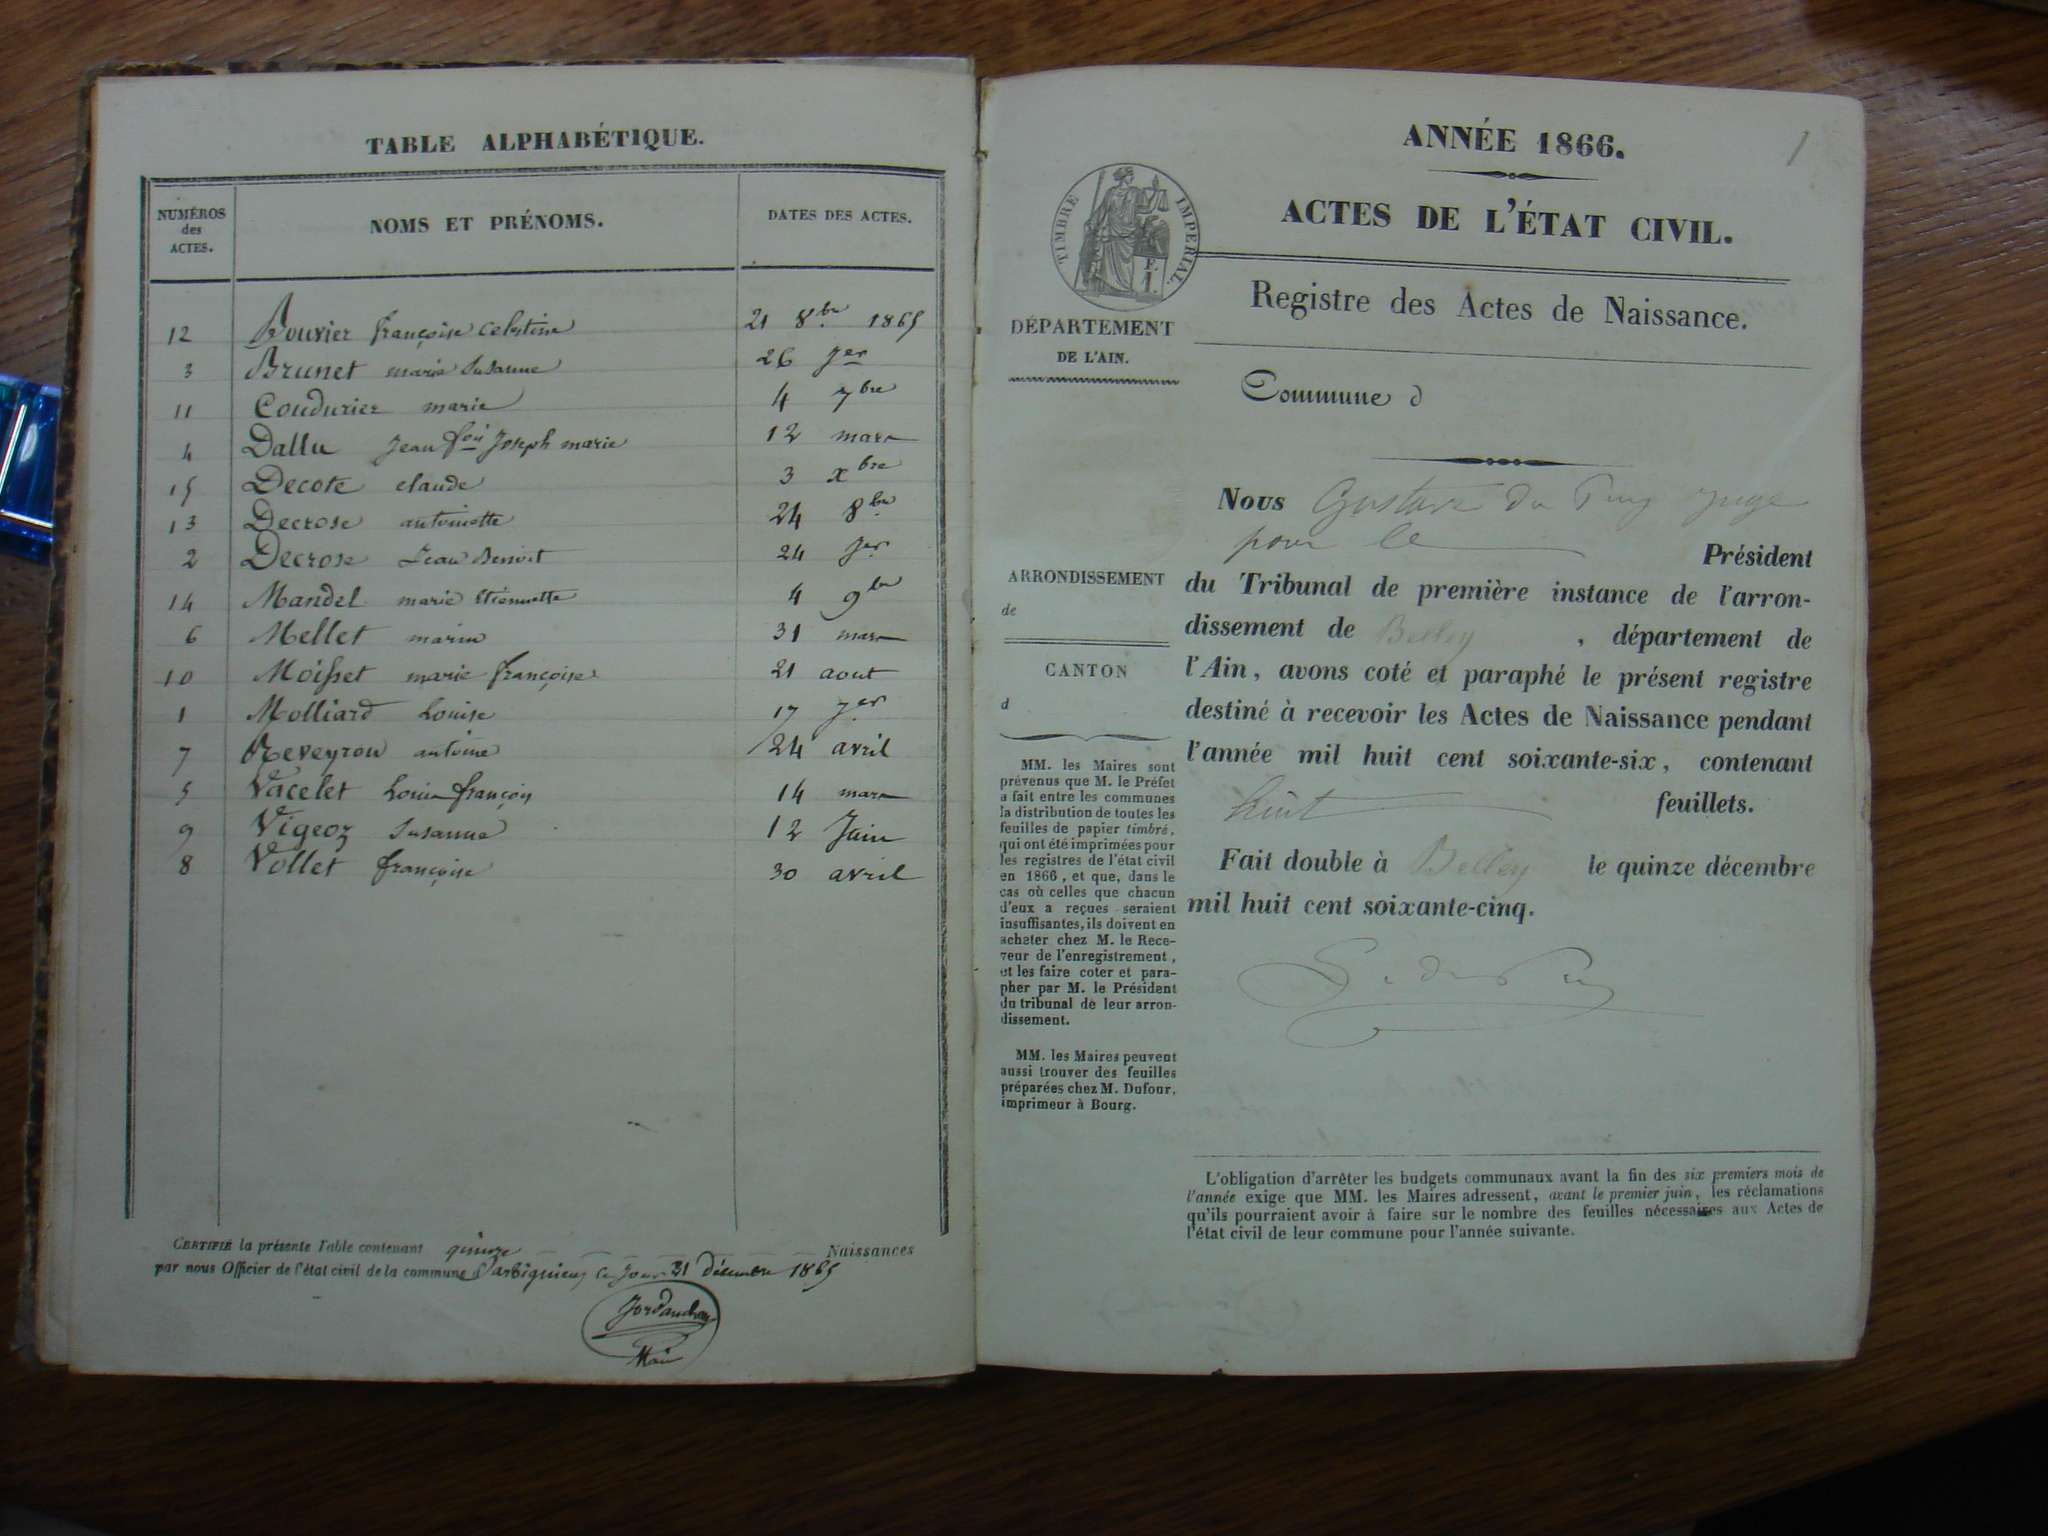 TABLE ALPHABÉTIQUE.
NUMÉROS
des
ACTES.
NOMS ET PRÉNOMS.
DATES DES ACTES.
12 Bouvier françoise Celestine 21 8bre 1865
3 Brunet marie Susanne 26 Jer
11 Coudurier marie 4 7bre
4 Dallu Jean foi Joseph marie 12 mars
15 Decote claude 3 xbre
13 Decrose antoinette 24 8bre
2 Decrose Jean Benoit 24 Jer
14 Mandel marie Etiennette 4 9bre
6 Mellet marin 31 mars
10 Moisset marie françoise 21 aout
1 Molliard Louise 17 Jer
7 Reveyron antoine 24 avril
5 Vacelet Louis françois 14 mars
9 Vigeoz Susanne 12 Juin
8 Vollet françoise 30 avril
CERTIFIÉ la présente Table contenant quinze Naissances
par nous Officier de l'état civil de la commune d'arbignieu ce jour 31 décembre 1865
1
ANNÉE 1866.
ACTES DE L'ÉTAT CIVIL.
TIMBRE IMPERIAL.
Registre des Actes de Naissance.
DÉPARTEMENT
DE L'AIN.
Commune d
Nous Gustave du Puy Juge
pour le Président
ARRONDISSEMENT
de
du Tribunal de première instance de l'arron-
dissement de Belley , département de
CANTON
d
l'Ain, avons coté et paraphé le présent registre
destiné à recevoir les Actes de Naissance pendant
l'année mil huit cent soixante-six, contenant
huit feuillets.
Fait double à Belley le quinze décembre
mil huit cent soixante-cinq.
G. du Puy
MM. les Maires sont
prévenus que M. le Préfet
a fait entre les communes
la distribution de toutes les
feuilles de papier timbré,
qui ont été imprimées pour
les registres de l'état civil
en 1866, et que, dans le
cas où celles que chacun
d'eux a reçues seraient
insuffisantes, ils doivent en
acheter chez M. le Rece-
veur de l'enregistrement,
et les faire coter et para-
pher par M. le Président
du tribunal de leur arron-
dissement.
MM. les Maires peuvent
aussi trouver des feuilles
préparées chez M. Dufour,
imprimeur à Bourg.
L'obligation d'arrêter les budgets communaux avant la fin des six premiers mois de
l'année exige que MM. les Maires adressent, avant le premier juin, les réclamations
qu'ils pourraient avoir à faire sur le nombre des feuilles nécessaires aux Actes de
l'état civil de leur commune pour l'année suivante.